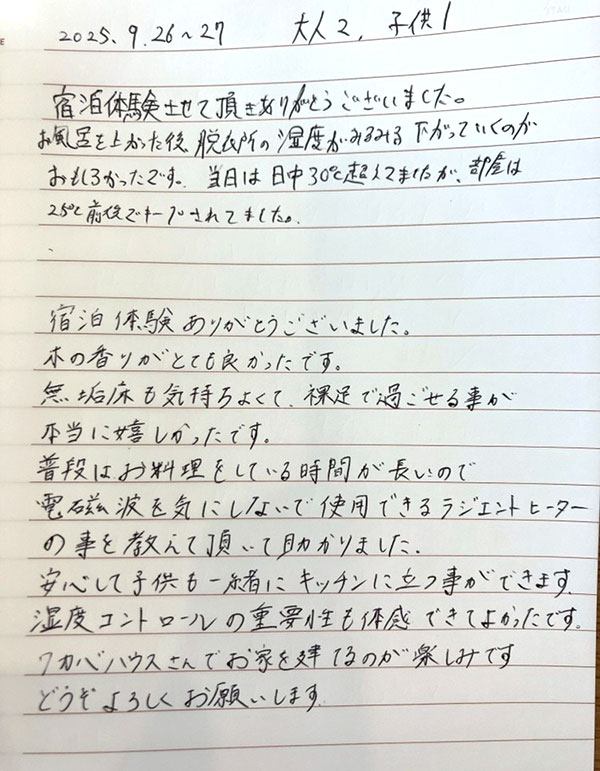 2025、9.26~27 大人2、子供1
宿泊体験させて頂きありがとうございました。
お風呂を上がった後、脱衣所の湿度がみるみる下がっていくのが
おもしろかったです。当日は日中30℃超えてましたが、部屋は
25℃前後でキープされてました。
宿泊体験ありがとうございました。
木の香りがとても良かったです。
無垢床も気持ちよくて、裸足で過ごせる事が
本当に嬉しかったです。
普段はお料理をしている時間が長いので
電磁波を気にしないで使用できるラジエントヒーター
の事を教えて頂いて助かりました。
安心して子供も一緒にキッチンに立つ事ができます。
湿度コントロールの重要性も体感できてよかったです。
ワカバハウスさんでお家を建てるのが楽しみです
どうぞよろしくお願いします。